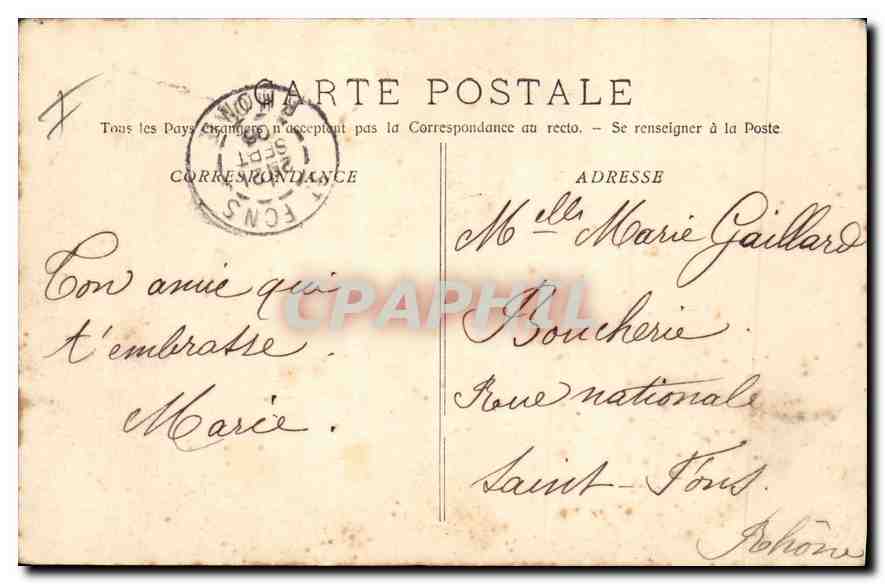 CARTE POSTALE
Tous les Pays étrangers n'acceptent pas la Correspondance au recto. - Se renseigner à la Poste.
CORRESPONDANCE
ADRESSE
Ton amie qui
t'embrasse.
Marie.
Melle Marie Gaillard
Boucherie.
Rue nationale
Saint-Fons.
Rhône
ST FONS
RHONE
SEPT
CPAPHIL